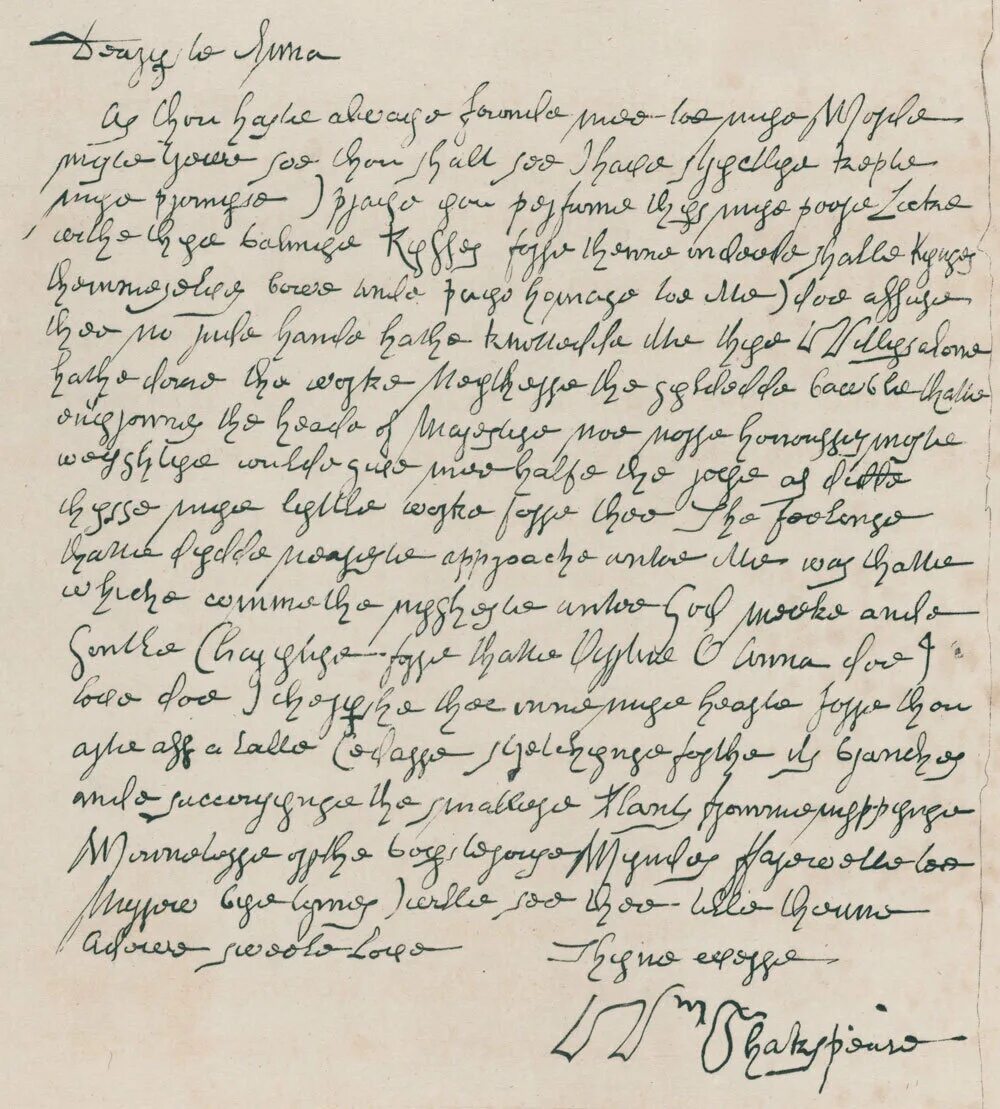 Dearesste Anna
As thou haste alwaye founde mee toe mye Worde
moste trewe soe thou shalt see I have stryctlye kepte
mye promyse I praye you perfume thys mye poore Locke
withe thye balmye Kysses forre thenne indeede shalle Kynges
themmeselves bowe ande paye homage toe itte I doe assure
thee no rude hande hathe knottedde itte thye Willys alone
hathe done the worke Neytherre the gyldedde bawble thatte
envyronnes the heade of Majestye noe norre honourres moste
weyghtye wulde give mee halfe the joye as didde
thysse mye lyttle worke forre thee The feelinge
thatte dydde neareste approache untoe itte was thatte
whiche commethe nygheste untoe God meeke ande
Gentle Charytye forre thatte Virrtue O Anna doe I
love doe I cheryshe thee inne mye hearte forre thou
arte ass a talle Cedarre stretchynge forthe its branches
ande succourynge the smallere Plants fromme nyppynge
Winneterre orr the boysterouse Wyndes Farewelle toe
Morrow bye tymes I wille see thee tille thenne
Adewe sweete Love
Thyne everre
Wm Shakspeare